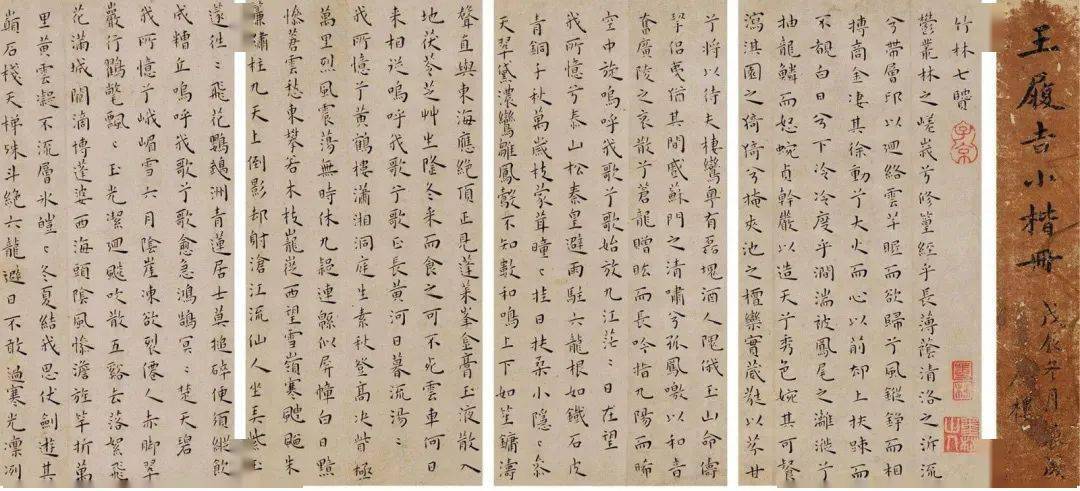 王履吉小楷冊
戊辰冬月
竹林七賢
子京
鬱叢林之嵯峩兮脩篁經乎長薄蔭清洛之泝流
兮帶層邱以迴絡雲芊眠而欲歸兮風鏦錚而相
搏高金凄其徐動兮大火而心以前却上扶疎而
不覩白日兮下泠泠度乎澗湍被鳳尾之離漇兮
抽龍鱗而妃蜿貞幹嚴以造天兮秀色婉其可餐
瀉淇園之猗猗兮掩夾池之檀欒實葳蕤以芬甘
兮將以待夫棲鸞粤有磊塊酒人隗俄玉山命儔
挈侣曳俗其間感蘇門之清嘯兮孤鳳噭以和音
奮廣陵之哀散兮蒼龍而長吟指九陽而晞
空中旋嗚呼我歌兮歌始放九江茫〻日在望
我所憶兮泰山松秦皇避雨駐六龍根如鐵石皮
青銅千秋萬歲枝蒙茸曈〻挂日扶桑小隱〻參
天翠黛濃鸞雛鳳鷇不知數和鳴上下如笙鏞濤
聲直與東海應絶頂正見蓬萊峯金膏玉液散入
地茯苓芝艸坐隆冬采而食之可不死雲車何日
来相送嗚呼我歌兮歌正長黄河日暮流湯〻
我所憶兮黄鶴樓瀟湘洞庭生素秋登高決眥極
萬里烈風雲蕩無時休九嶷連緜似屏幛白日黯
慘蒼雲愁東攀若木枝巃嵸西望雪嶺寒颼飀朱
簾繡柱九天上倒影却射滄江流仙人坐弄紫玉
篴往〻飛花鸚鵡洲青蓮居士莫搥碎便須縱飲
成糟丘嗚呼我歌兮歌愈急鴻鵠冥〻楚天碧
我所憶兮峨嵋雪六月陰崖凍欲裂僊人赤脚翠
巖行鶴氅飄〻玉光潔迴颷吹散五谿去落絮飛
花滿城闕滴博蓬婆西海頭陰風慘澹旄竿折萬
里黄雲凝不流層氷皚〻冬夏結我思伏劍遊其
巔石棧天梯殊斗絶六龍避日不敢過寒光凛冽